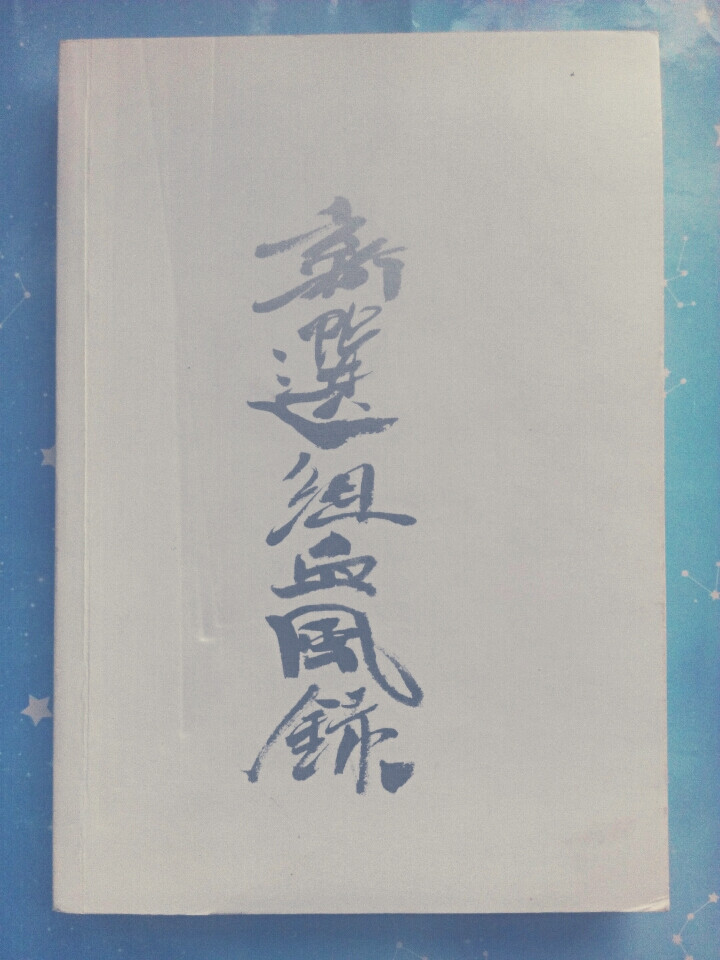 新選組血風録